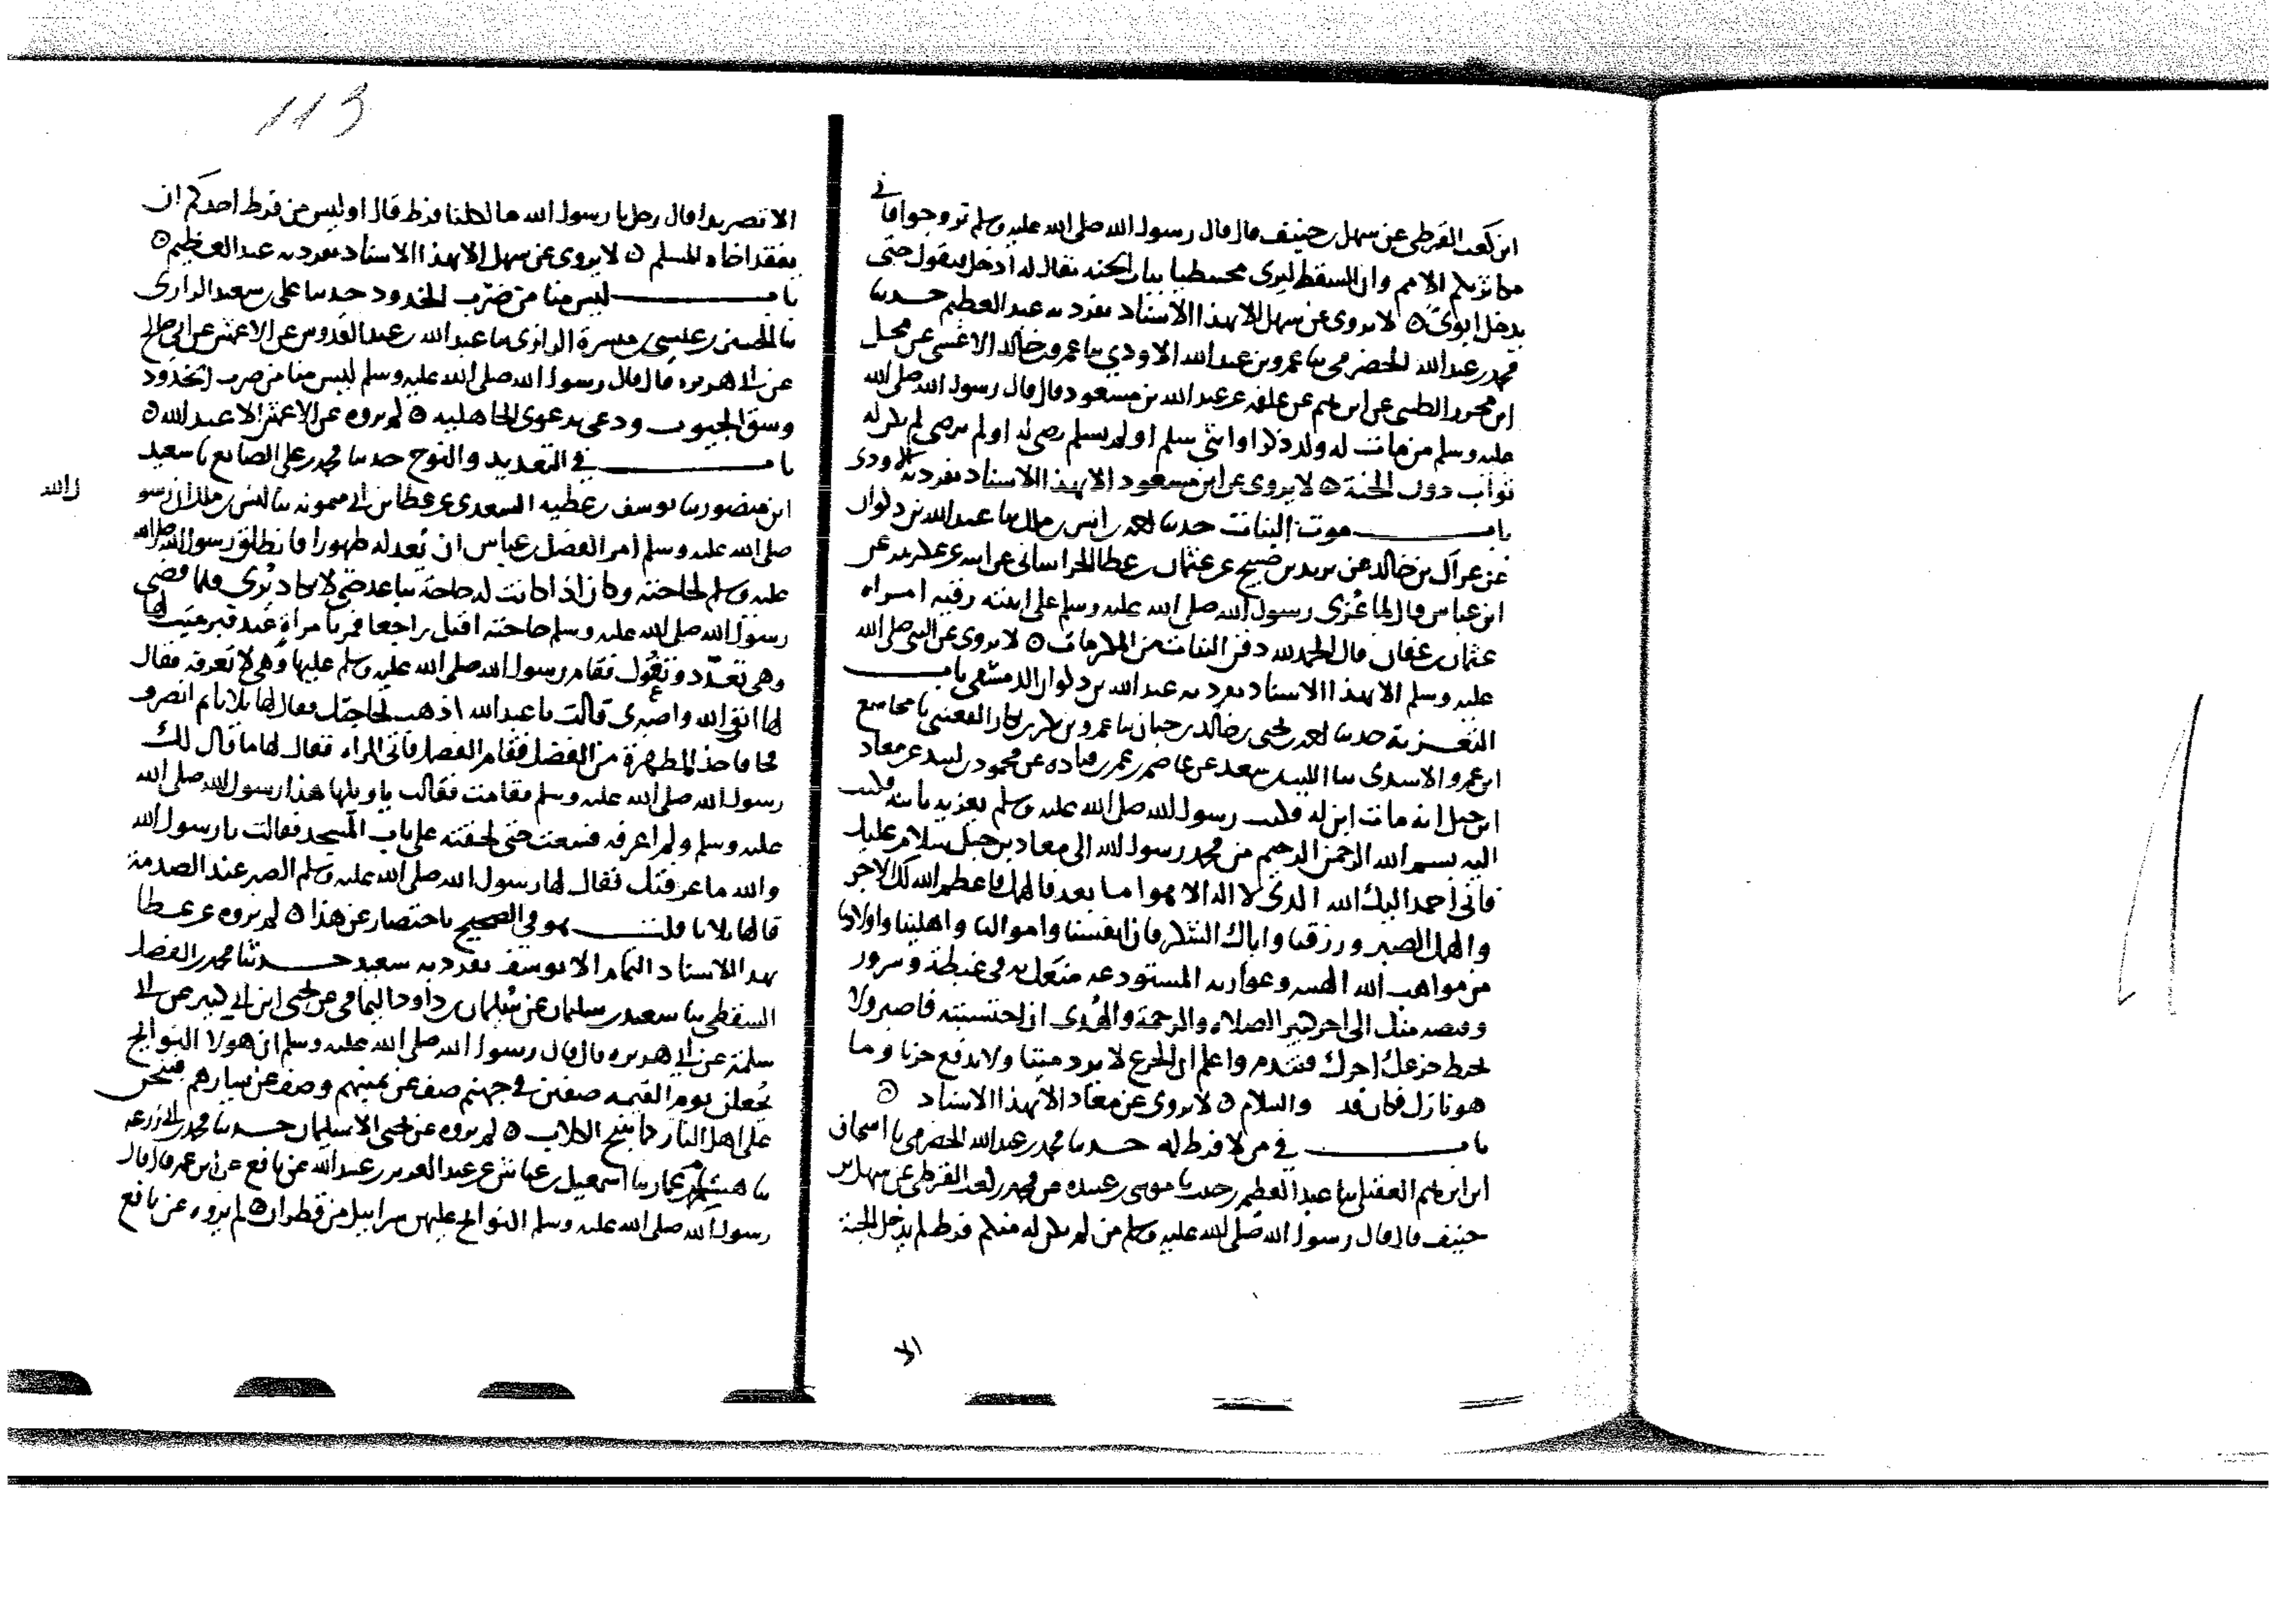 ابن كعب القرظى عن سهل بن حنيف قال قال رسول الله صلى الله عليه وسلم تزوجوا فانى
مكاثر بكم الامم وان السقط ليرى محبنطيا بباب الجنه يقال له ادخل فيقول حتى
يدخل ابوى ۝ لا يروى عن سهل الا بهذا الاسناد تفرد به عبد العظيم حدثنا
محمد بن عبد الله الحضرمى ثنا عمرو بن عبد الله الاودي ثنا عمرو بن خالد الاعشى عن محل
ابن محرز الضبى عن ابرهيم عن علقمه عن عبد الله بن مسعود قال قال رسول الله صلى الله
عليه وسلم من مات له ولد ذكر او انثى سلم او لم يسلم رضى له او لم يرضى لم يكن له
ثواب دون الجنة ۝ لا يروى عن ابن مسعود الا بهذا الاسناد تفرد به الاودى
باب موت البنات حدثنا احمد بن انس بن ملك ثنا عبد الله بن ذكوان
عن عراك بن خالد عن يزيد بن صبيح عن عثمان بن عطا الخراسانى عن ابيه عن عكرمه عن
ابن عباس قال لما عزى رسول الله صلى الله عليه وسلم على ابنته رقيه امراه
عثمان بن عفان قال الحمد لله دفن البنات من المكرمات ۝ لا يروى عن النبى صلى الله
عليه وسلم الا بهذا الاسناد تفرد به عبد الله بن ذكوان الدمشقى باب
التعزية حدثنا احمد بن يحيى بن خالد بن حيان ثنا عمرو بن بكر بن بكار القعنبى نا مجاشع
ابن عمرو الاسدى ثنا الليث بن سعد عن عاصم بن عمر بن قتاده عن محمود بن لبيد عن معاذ
ابن جبل انه مات ابن له فكتب رسول الله صلى الله عليه وسلم يعزيه بابنه فكتب
اليه بسم الله الرحمن الرحيم من محمد رسول الله الى معاذ بن جبل سلام عليك
فانى احمد اليك الله الذى لا اله الا هو اما بعد فالهمك فاعظم الله لك الاجر
والهمك الصبر ورزقنا واياك الشكر فان انفسنا واموالنا واهلينا واولادنا
من مواهب الله الهنيه وعواريه المستودعه متعك به فى غبطة وسرور
وقبضه منك الى اجر كثير الصلاة والرحمة والهدى ان احتسبته فاصبر ولا
يحبط جزعك اجرك فتندم واعلم ان الجزع لا يرد ميتا ولا يدفع حزنا وما
هو نازل فكان قد والسلام ۝ لا يروى عن معاذ الا بهذا الاسناد ۝
باب في من لا فرط له حدثنا محمد بن عبد الله الحضرمى نا اسحاق
ابن ابرهيم العقيلى ثنا عبد العظيم بن حبيب نا موسى بن عبيده عن محمد بن كعب القرظى عن سهل بن
حنيف قال قال رسول الله صلى الله عليه وسلم من لم يكن له منكم فرط لم يدخل الجنة
الا
113
الا تصريدا فقال رجل يا رسول الله ما لكلنا فرط قال اوليس من فرط احدكم ان
يفقد اخاه المسلم ۝ لا يروى عن سهل الا بهذا الاسناد تفرد به عبد العظيم ۝
باب ليس منا من ضرب الخدود حدثنا على بن سعيد الرازى
ثنا الحسين بن عيسى بن ميسرة الرازى ثنا عبد الله بن عبد القدوس عن الاعمش عن ابى صالح
عن ابى هريره قال قال رسول الله صلى الله عليه وسلم ليس منا من ضرب الخدود
وشق الجيوب ودعى بدعوى الجاهليه ۝ لم يروه عن الاعمش الا عبد الله ۝
باب في التعديد والنوح حدثنا محمد بن على الصايغ نا سعيد
ابن منصور ثنا يوسف بن عطيه السعدى عن عطا بن ابى ميمونه ثنا انس بن ملك ان رسو
ل الله
صلى الله عليه وسلم امر الفضل بن عباس ان يعد له طهورا فانطلق رسول الله صلى الله
عليه وسلم لحاجته وكان اذا كانت له حاجة تباعد حتى لا يكاد يرى فلما قضى
رسول الله صلى الله عليه وسلم حاجته اقبل راجعا فمر بامراة عند قبر ميت لها
وهى تعدد وتقول فقام رسول الله صلى الله عليه وسلم عليها وهى لا تعرفه فقال
لها اتق الله واصبرى قالت يا عبد الله اذهب لحاجتك فقال لها ثلاثا ثم انصرف
فجا فاخذ المطهرة من الفضل فقام الفضل فاتى المراه فقال لها ما قال لك
رسول الله صلى الله عليه وسلم فقامت فقالت يا ويلها هذا رسول الله صلى الله
عليه وسلم ولم اعرفه فسعت حتى لحقته على باب المسجد فقالت يا رسول الله
والله ما عرفتك فقال لها رسول الله صلى الله عليه وسلم الصبر عند الصدمة
قالها ثلاثا قلت هو فى الصحيح باختصار عن هذا ۝ لم يروه عن عطا
بهذا الاسناد التمام الا يوسف تفرد به سعيد حدثنا محمد بن الفضل
السقطى ثنا سعيد بن سليمان عن سليمان بن داود اليمامى عن يحيى ابن ابى كثير عن ابى
سلمة عن ابى هريره قال قال رسول الله صلى الله عليه وسلم ان هولا النوايح
يجعلن يوم القيمه صفين فى جهنم صف عن يمينهم وصف عن يسارهم فينبحن
على اهل النار كما تنبح الكلاب ۝ لم يروه عن يحيى الا سليمان حدثنا محمد بن ابى زرعه
ثنا هشام بن عمار ثنا اسمعيل بن عياش عن عبد العزيز بن عبيد الله عن نافع عن ابن عمر قال قال
رسول الله صلى الله عليه وسلم النوايح عليهن سرابيل من قطران ۝ لم يروه عن نافع